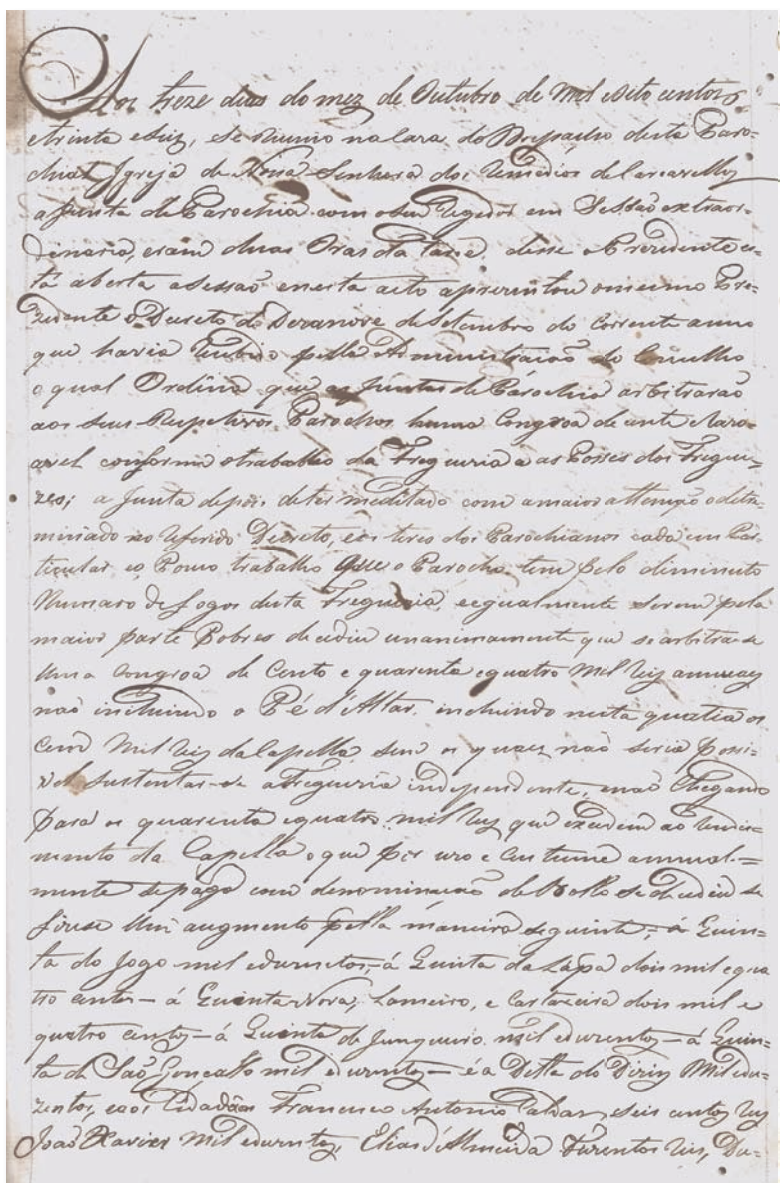 Aos treze dias do mez de Outubro de Mil oito centos
e trinta e Seis, se reunio na Caza do Despacho desta Paro-
chial Igreja de Nossa Senhora dos Remedios de Carcavellos
a Junta de Parochia com o seu Regedor em Sessão extraor-
dinaria, erão duas Oras da tarde, disse o Prezidente es-
tá aberta a Sessão e nesta acto aprezentou o mesmo Pre-
zidente o Decreto de Dezanove de Setembro do Corrente anno
que havia recebido pella Administração do Concelho
o qual Ordena que as Juntas de Parochia arbitrarão
aos seus Respetivos Parochos huma Congroa decente e Razo-
avel conforme o trabalho da Freguezia e as Posses dos Fregue-
zes; a Junta depois de ter meditado com a maior attenção o deter-
minado no referido Decreto, e os teres dos Parochianos cada um Par-
ticular e o Pouco trabalho que o Parocho tem pelo diminuto
Numaro de Fogos desta Freguezia, e egualmente serem pela
maior parte Pobres decediu unanimamente que se arbitrase
huma Congroa de Cento e quarenta e quatro Mil reis annuaes
não incluindo o Pé d'Altar, incluindo nesta quatia os
Cem Mil reis da Capella, sem os quaes não seria Possi-
vel sustentar-se a Freguezia independente, e não Chegando
para os quarenta e quatro mil reis que excedem ao rendi-
mento da Capella o que por uzo e Custume annual-=
mente se paga com denominação de Bollo se decediu se
fizese hum augmento pella maneira seguinte; á Quin-
ta do Jogo mil e duzentos, á Quinta da Lapa dois mil e qua
tro centos — á Quinta Nova, Lameiro, e Cartaxeira dois mil e
quatro centos — á Quenta do Junqueiro mil e duzentos — á Quin-
ta de São Gonçallo mil e duzentos — é a Ditta do Diriz Mil e du-
zentos, e aos Cidadãos Francisco Antonio Caldas, seis centos reis
João Xavier Mil e duzentos, Elias d'Almeida Tuzentos reis, Du-